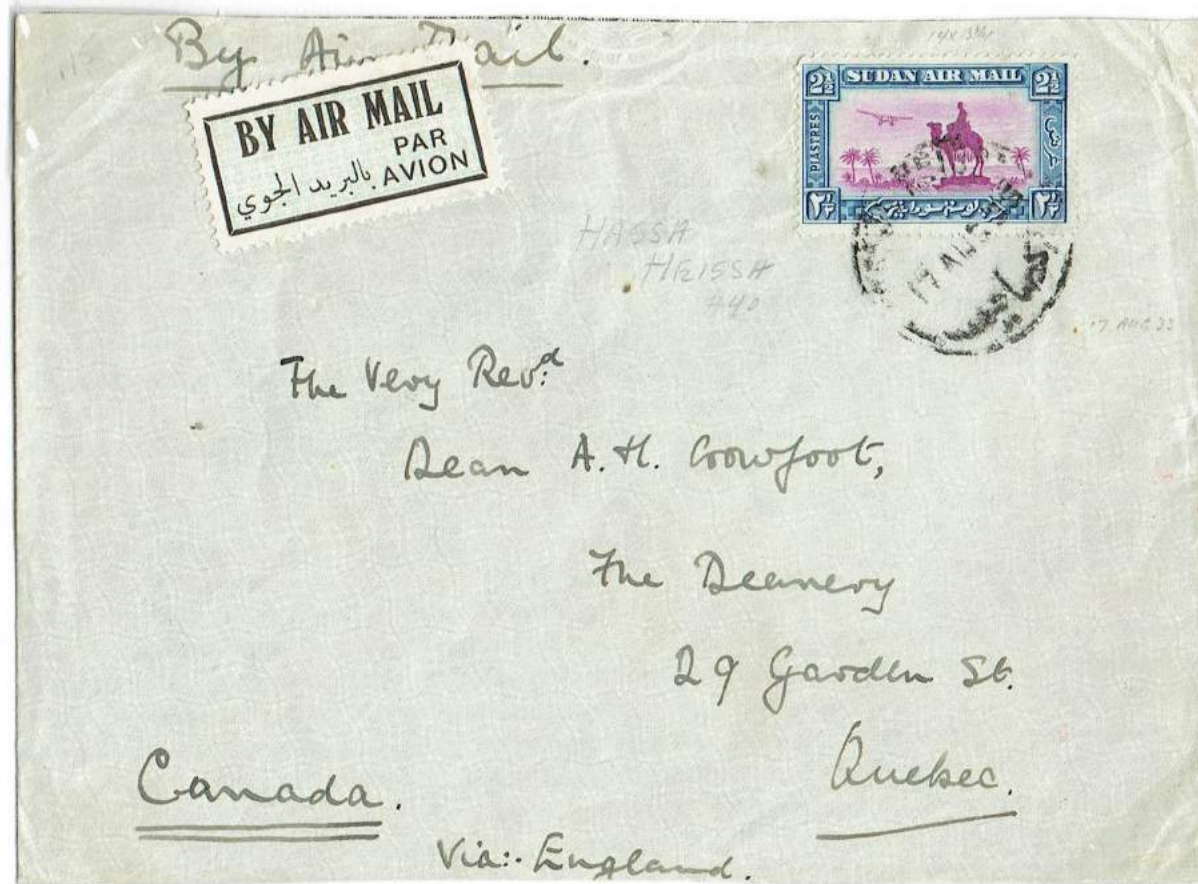 By Air Mail.
14 X 13¾
BY AIR MAIL
PAR
AVION
بالبريد الجوي
2½ SUDAN AIR MAIL 2½
PIASTRES
قرش
٢½ ٢½
17 AUG
HASSA
HEISSA
440
17 AUG 33
The Very Revd:
Dean A.H. Crowfoot,
The Deanery
29 Garden St.
Quebec.
Canada.
Via:- England.